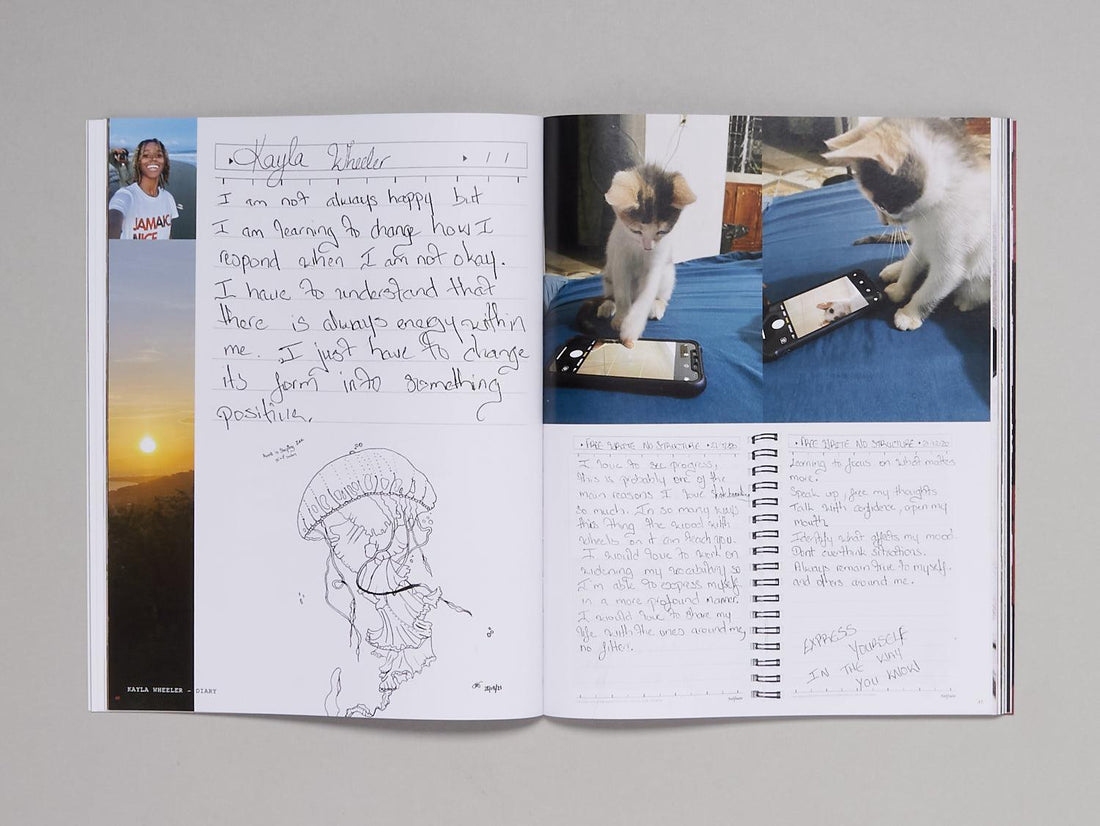 JAMAIC
NICE
KAYLA WHEELER - DIARY
Kayla Wheeler
I am not always happy but
I am learning to change how I
respond when I am not okay.
I have to understand that
there is always energy within
me. I just have to change
its form into something
positive.
FREE WRITE NO STRUCTURE
I love to see progress,
this is probably one of the
main reasons I love skateboarding
so much. In so many ways
this thing the wood with
wheels on it can teach you.
I would love to work on
widening my vocabulary so
I'm able to express myself
in a more profound manner.
I would love to share my
life with the ones around me,
no filter.
FREE WRITE NO STRUCTURE
Learning to focus on what makes
more.
Speak up, free my thoughts
Talk with confidence, open my
mouth.
Identify what affects my mood.
Dont overthink situations.
Always remain true to myself.
and others around me.
EXPRESS
YOURSELF
IN THE WAY
YOU KNOW